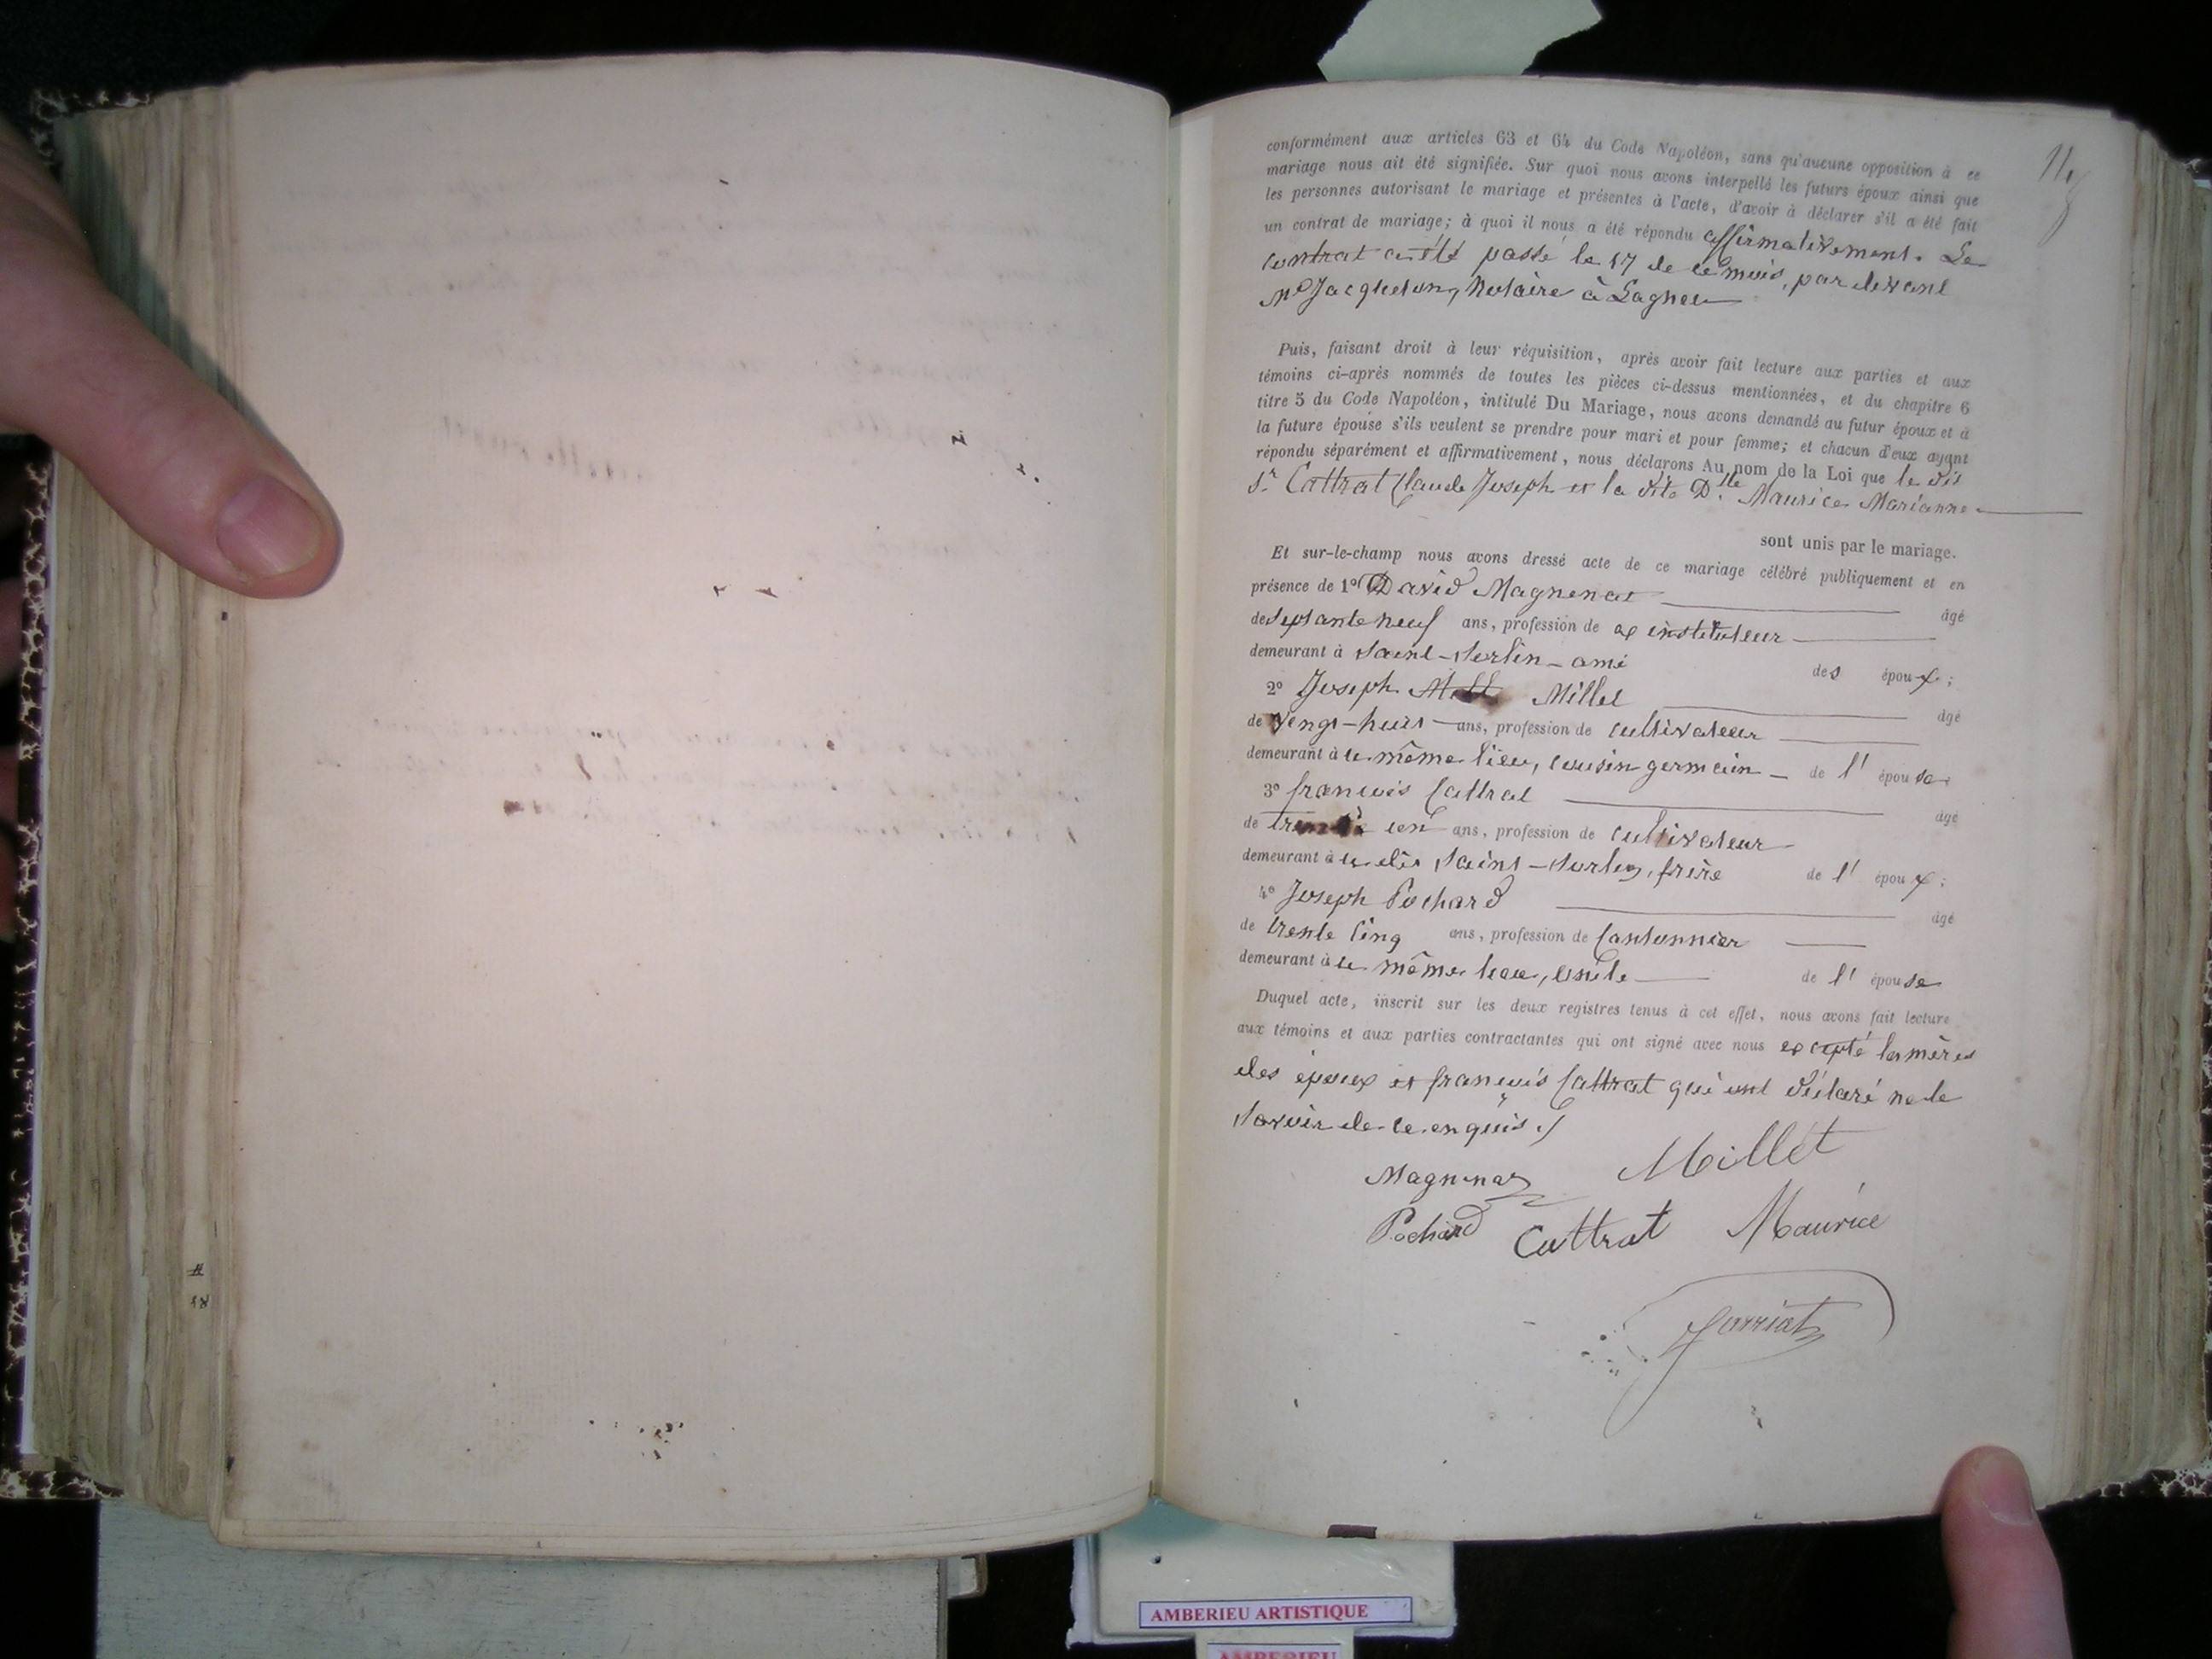 conformément aux articles 63 et 64 du Code Napoléon, sans qu'aucune opposition à ce
mariage nous ait été signifiée. Sur quoi nous avons interpellé les futurs époux ainsi que
les personnes autorisant le mariage et présentes à l'acte, d'avoir à déclarer s'il a été fait
un contrat de mariage; à quoi il nous a été répondu affirmativement. Le
contrat a été passé le 17 de ce mois, par devant
Me Notaire à Lagnieu
Puis, faisant droit à leur réquisition, après avoir fait lecture aux parties et aux
témoins ci-après nommés de toutes les pièces ci-dessus mentionnées, et du chapitre 6
titre 5 du Code Napoléon, intitulé Du Mariage, nous avons demandé au futur époux et à
la future épouse s'ils veulent se prendre pour mari et pour femme; et chacun d'eux ayant
répondu séparément et affirmativement, nous déclarons Au nom de la Loi que le dit
Sr Cattrat Claude Joseph et la dite Dlle Maurice Marianne
sont unis par le mariage.
Et sur-le-champ nous avons dressé acte de ce mariage célébré publiquement et en
présence de 1° David Magnenat âgé
de septante neuf ans, profession de ex instituteur
demeurant à Saint-Sorlin - ami des époux;
2° Joseph Millet âgé
de vingt-huit ans, profession de cultivateur
demeurant à ce même lieu, cousin germain de l'épouse
3° françois Cattrat âgé
de un ans, profession de cultivateur
demeurant à ce dit Saint-Sorlin, frère de l'époux;
4° Joseph Pochard âgé
de trente cinq ans, profession de Cantonnier
demeurant à ce même lieu, de l'épouse
Duquel acte, inscrit sur les deux registres tenus à cet effet, nous avons fait lecture
aux témoins et aux parties contractantes qui ont signé avec nous excepté les mères
des époux et françois Cattrat qui ont déclaré ne le
savoir de ce enquis.
Magnenat Millet
Pochard Cattrat Maurice
Jarriat
AMBERIEU ARTISTIQUE
AMBERIEU